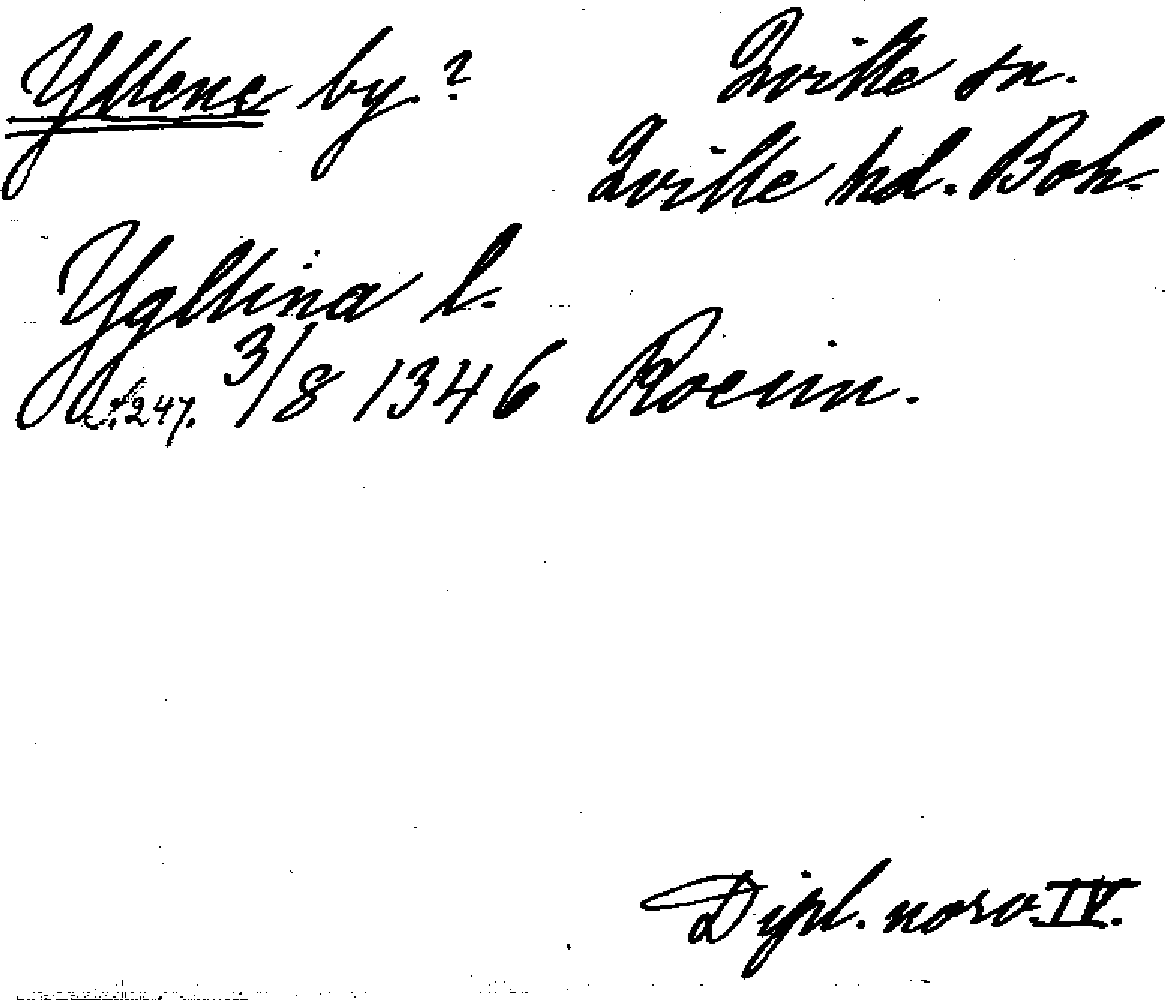 Yllene by.? Qville sn.
Qville hd. Boh.
Ygllina l.
s. 247. 3/8 1346 Roeiin.
Dipl. norv. IV.